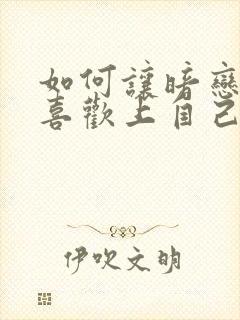 如何讓暗戀
喜歡上自己
伊吹文明